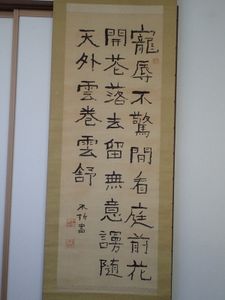 寵辱不驚閒看庭前花
開芲落去留無意謾隨
天外雲卷雲舒